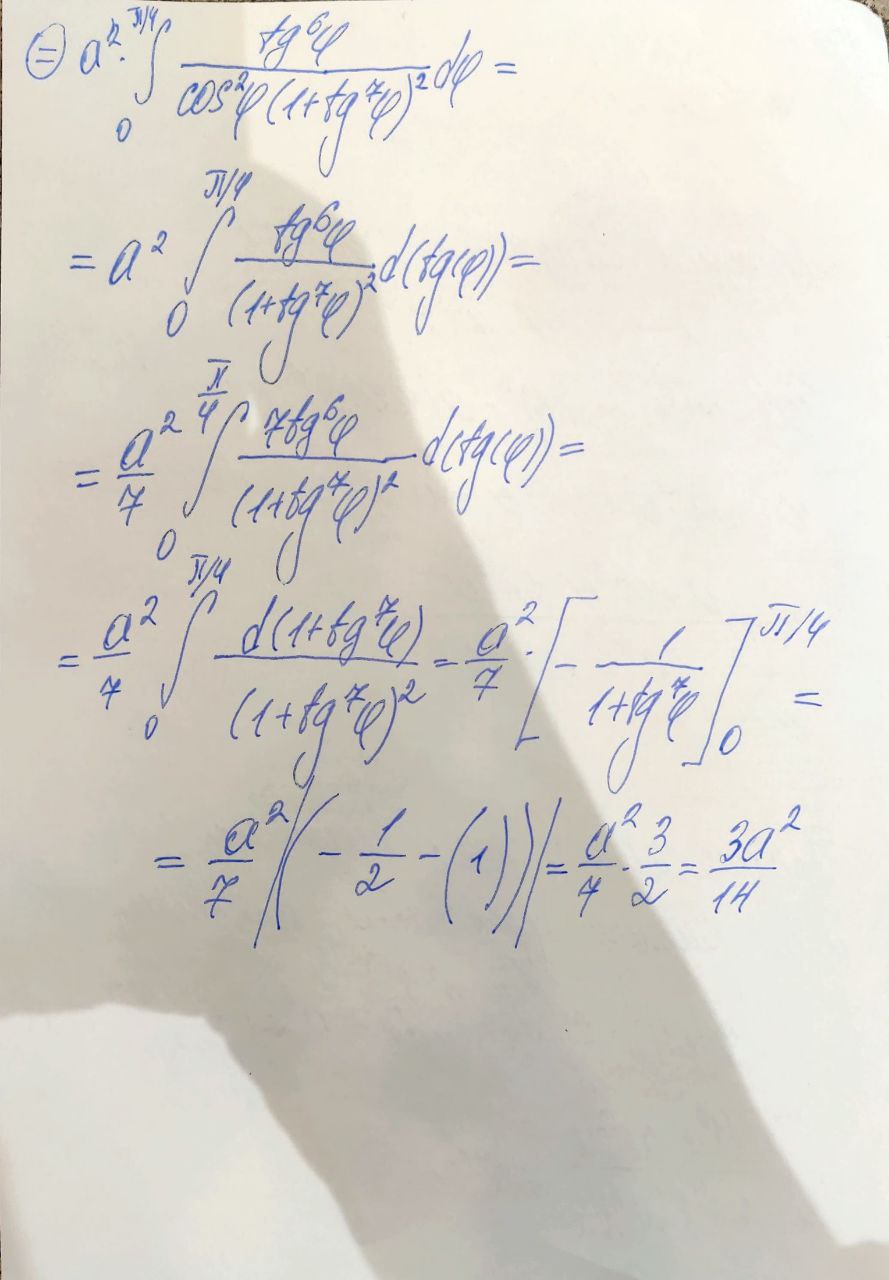 ⊜ a²·∫₀^{π/4} tg⁶φ / (cos²φ(1+tg⁷φ)²) dφ =
= a² ∫₀^{π/4} tg⁶φ / (1+tg⁷φ)² d(tg(φ)) =
= a²/7 ∫₀^{π/4} 7tg⁶φ / (1+tg⁷φ)² d(tg(φ)) =
= a²/7 ∫₀^{π/4} d(1+tg⁷φ) / (1+tg⁷φ)² = a²/7 · [- 1/(1+tg⁷φ)]₀^{π/4} =
= a²/7 |(- 1/2 - (1))| = a²/7 · 3/2 = 3a²/14